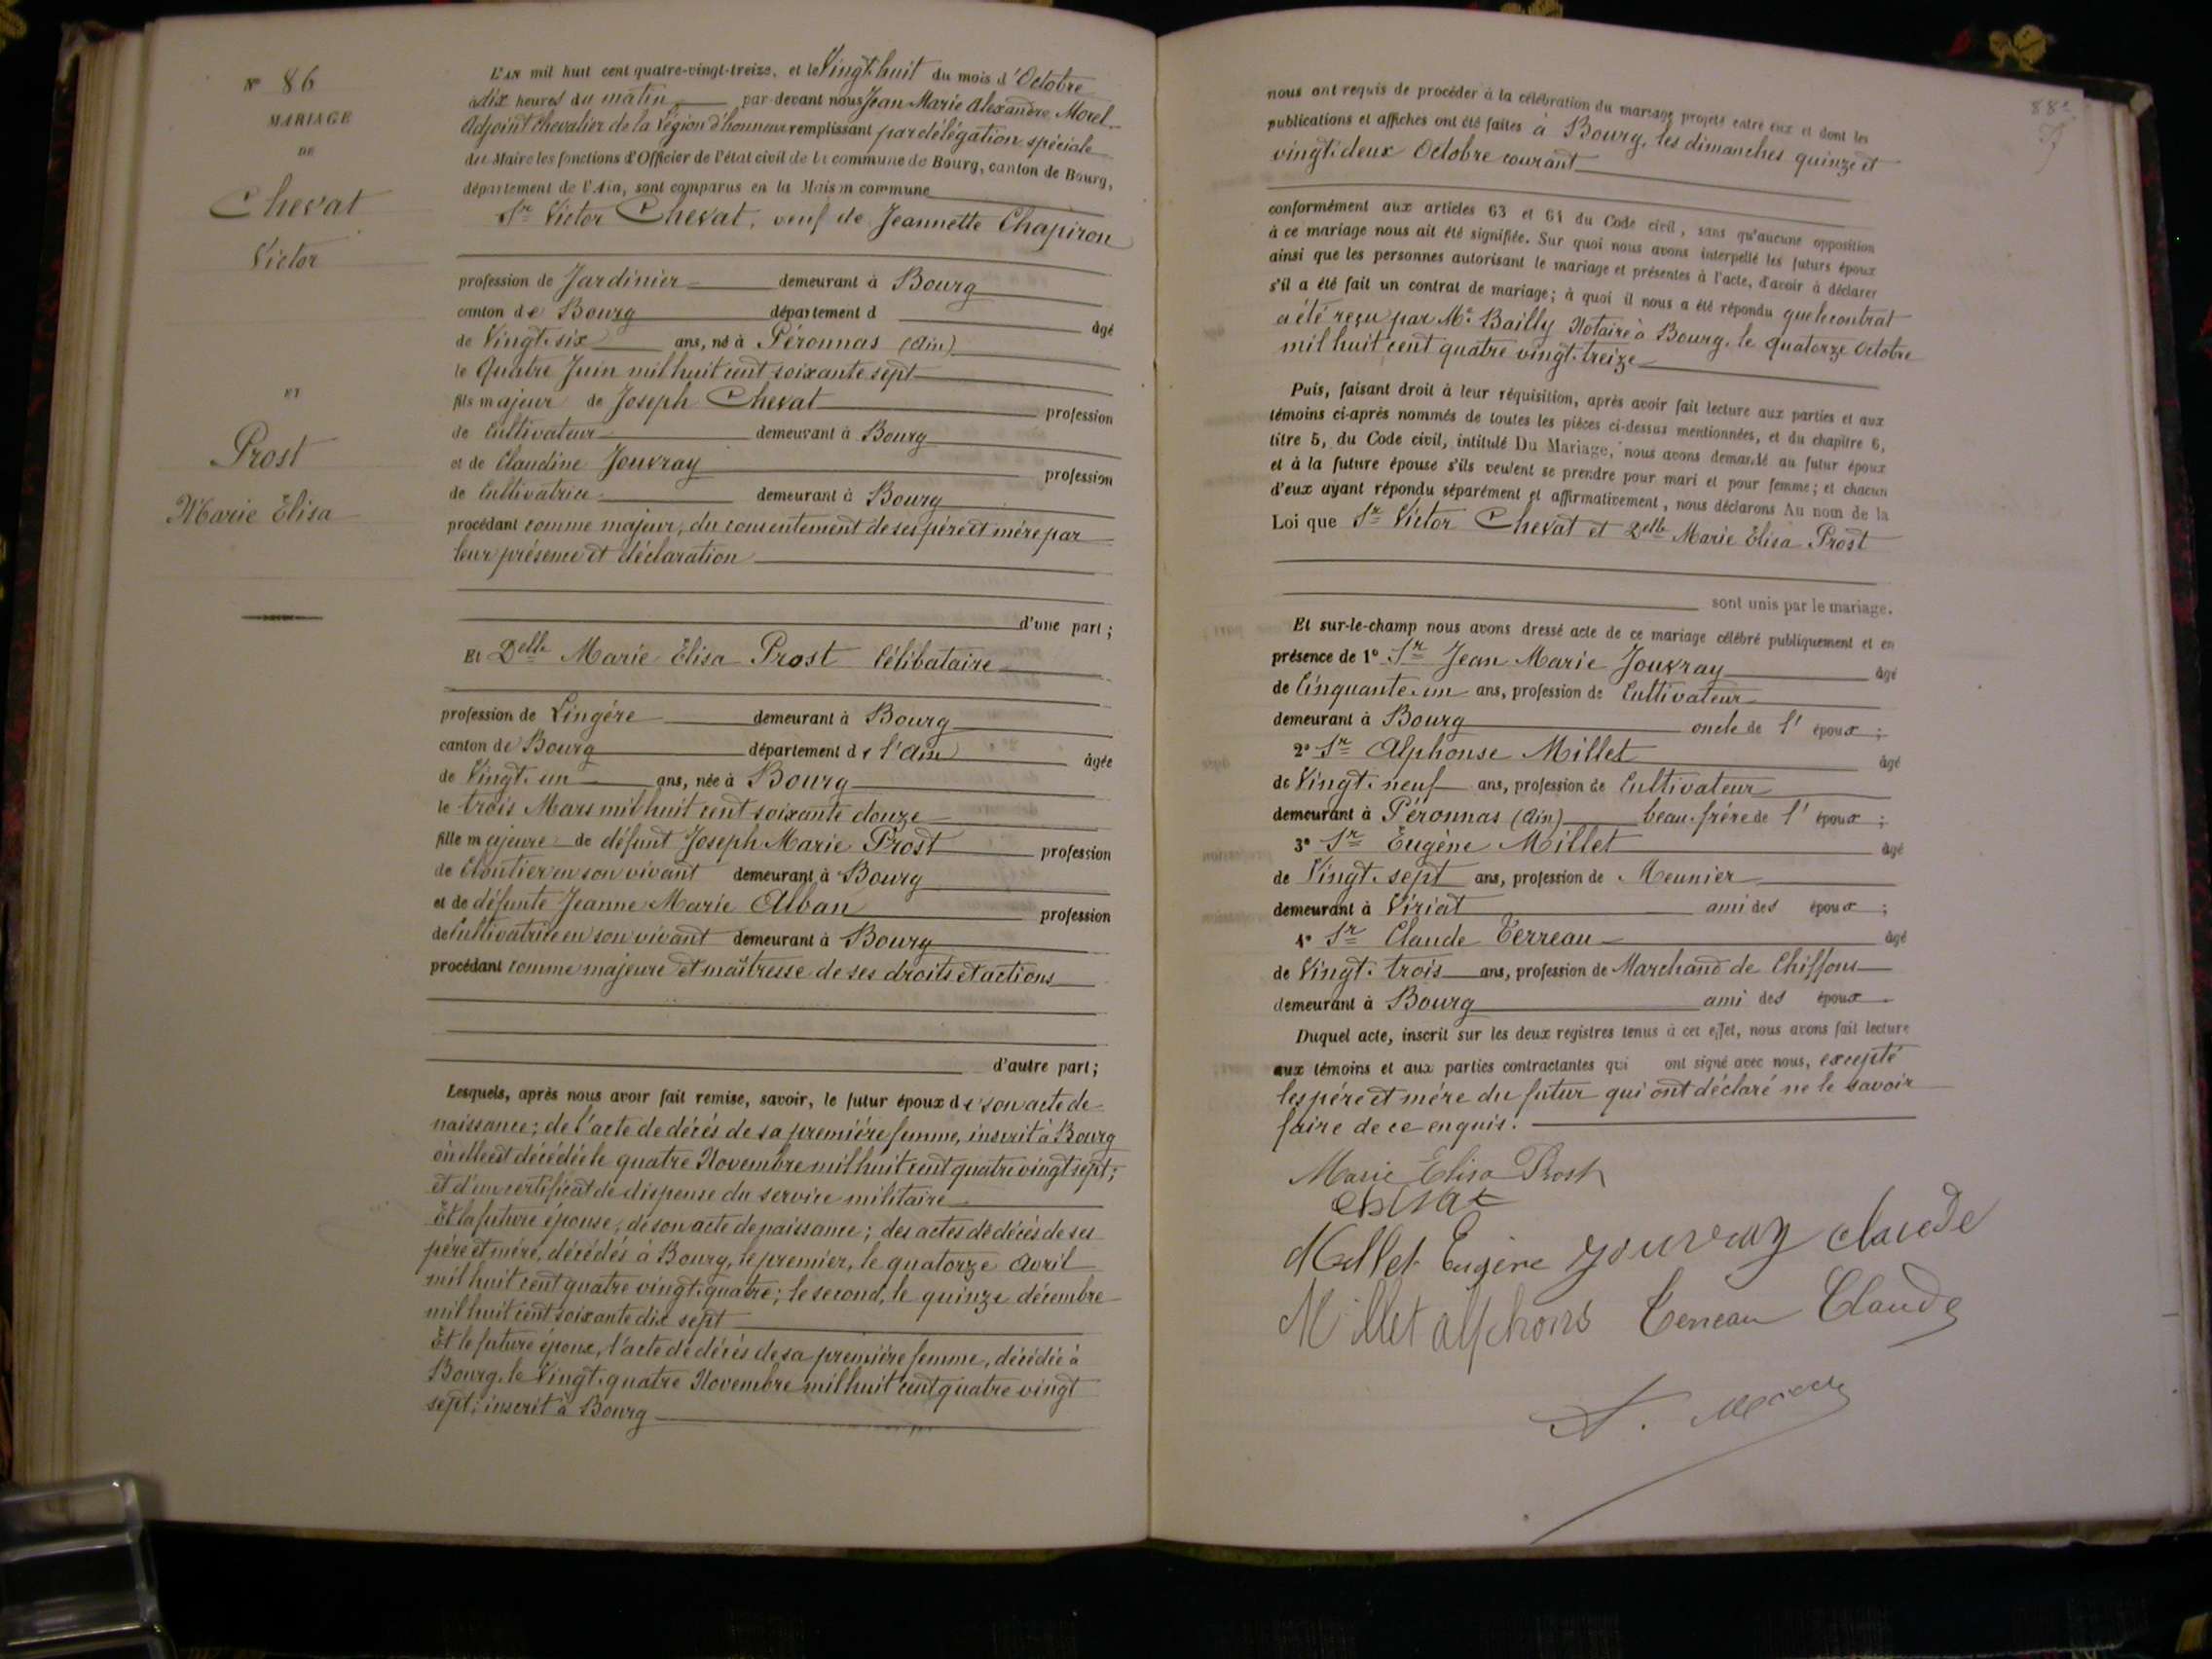 N° 86
MARIAGE
DE
Chevat
Victor
ET
Prost
Marie Elisa
L'AN mil huit cent quatre-vingt-treize, et le Vingt-huit du mois d'Octobre
à dix heures du matin par-devant nous Jean Marie Alexandre Morel
Adjoint Chevalier de la Légion d'honneur remplissant par délégation spéciale
du Maire les fonctions d'Officier de l'état civil de la commune de Bourg, canton de Bourg,
département de l'Ain, sont comparus en la Maison commune
Sr Victor Chevat, veuf de Jeannette Chapiron
profession de Jardinier demeurant à Bourg
canton de Bourg département d âgé
de Vingt-six ans, né à Péronnas (Ain)
le Quatre Juin mil huit cent soixante sept
fils majeur de Joseph Chevat profession
de Cultivateur demeurant à Bourg
et de Claudine Jouvray profession
de Cultivatrice demeurant à Bourg
procédant comme majeur, du consentement de ses père et mère par
leur présence et déclaration
d'une part ;
Et Delle Marie Elisa Prost Célibataire
profession de Lingère demeurant à Bourg
canton de Bourg département de l'Ain âgée
de Vingt-un ans, née à Bourg
le trois Mars mil huit cent soixante douze
fille majeure de défunt Joseph Marie Prost profession
de Cloutier en son vivant demeurant à Bourg
et de défunte Jeanne Marie Alban profession
de Cultivatrice en son vivant demeurant à Bourg
procédant comme majeure et maîtresse de ses droits et actions
d'autre part ;
Lesquels, après nous avoir fait remise, savoir, le futur époux de son acte de
naissance ; de l'acte de décès de sa première femme, inscrit à Bourg
où elle est décédée le quatre Novembre mil huit cent quatre vingt sept ;
et d'un certificat de dispense du service militaire
Et la future épouse, de son acte de naissance ; des actes de décès de ses
père et mère, décédés à Bourg, le premier, le quatorze Avril
mil huit cent quatre vingt-quatre ; le second, le quinze décembre
mil huit cent soixante dix sept
Et le future époux, l'acte de décès de sa première femme, décédée à
Bourg, le Vingt-quatre Novembre mil huit cent quatre vingt
sept ; inscrit à Bourg
88e
nous ont requis de procéder à la célébration du mariage projeté entre eux et dont les
publications et affiches ont été faites à Bourg, les dimanches quinze et
vingt-deux Octobre courant
conformément aux articles 63 et 64 du Code civil, sans qu'aucune opposition
à ce mariage nous ait été signifiée. Sur quoi nous avons interpellé les futurs époux
ainsi que les personnes autorisant le mariage et présentes à l'acte, d'avoir à déclarer
s'il a été fait un contrat de mariage ; à quoi il nous a été répondu que le contrat
a été reçu par Me Bailly Notaire à Bourg, le quatorze Octobre
mil huit cent quatre vingt-treize
Puis, faisant droit à leur réquisition, après avoir fait lecture aux parties et aux
témoins ci-après nommés de toutes les pièces ci-dessus mentionnées, et du chapitre 6,
titre 5, du Code civil, intitulé Du Mariage, nous avons demandé au futur époux
et à la future épouse s'ils veulent se prendre pour mari et pour femme ; et chacun
d'eux ayant répondu séparément et affirmativement, nous déclarons Au nom de la
Loi que Sr Victor Chevat et Delle Marie Elisa Prost
sont unis par le mariage.
Et sur-le-champ nous avons dressé acte de ce mariage célébré publiquement et en
présence de 1° Sr Jean Marie Jouvray âgé
de Cinquante-un ans, profession de Cultivateur
demeurant à Bourg oncle de l'époux ;
2° Sr Alphonse Millet âgé
de Vingt-neuf ans, profession de Cultivateur
demeurant à Péronnas (Ain) beau-frère de l'époux ;
3° Sr Eugène Millet âgé
de Vingt-sept ans, profession de Meunier
demeurant à Viriat ami des époux ;
4° Sr Claude Terreau âgé
de Vingt-trois ans, profession de Marchand de Chiffons
demeurant à Bourg ami des époux.
Duquel acte, inscrit sur les deux registres tenus à cet effet, nous avons fait lecture
aux témoins et aux parties contractantes qui ont signé avec nous, excepté
les père et mère du futur qui ont déclaré ne le savoir
faire de ce enquis.
Marie Elisa Prost
Millet Eugène Jouvray Claude
Millet alphons Terreau Claude